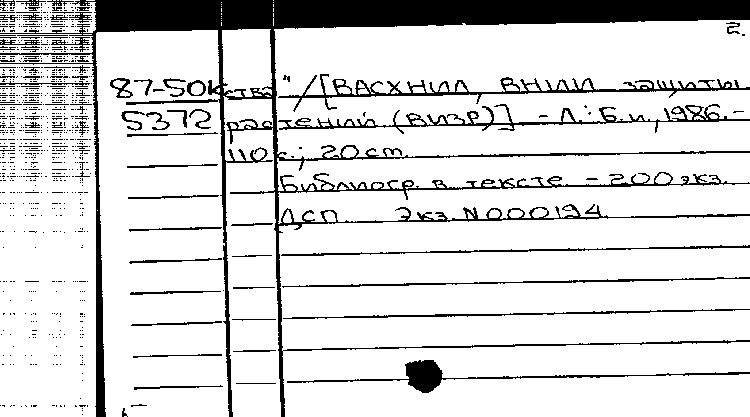 2.
87-50к ства" / [ВАСХНИЛ, ВНИИ защиты
5372 растений (ВИЗР)] - Л.: Б.и., 1986. -
110 с.; 20 cm.
Библиогр. в тексте. - 200 экз.
ДСП. Экз. N000194.